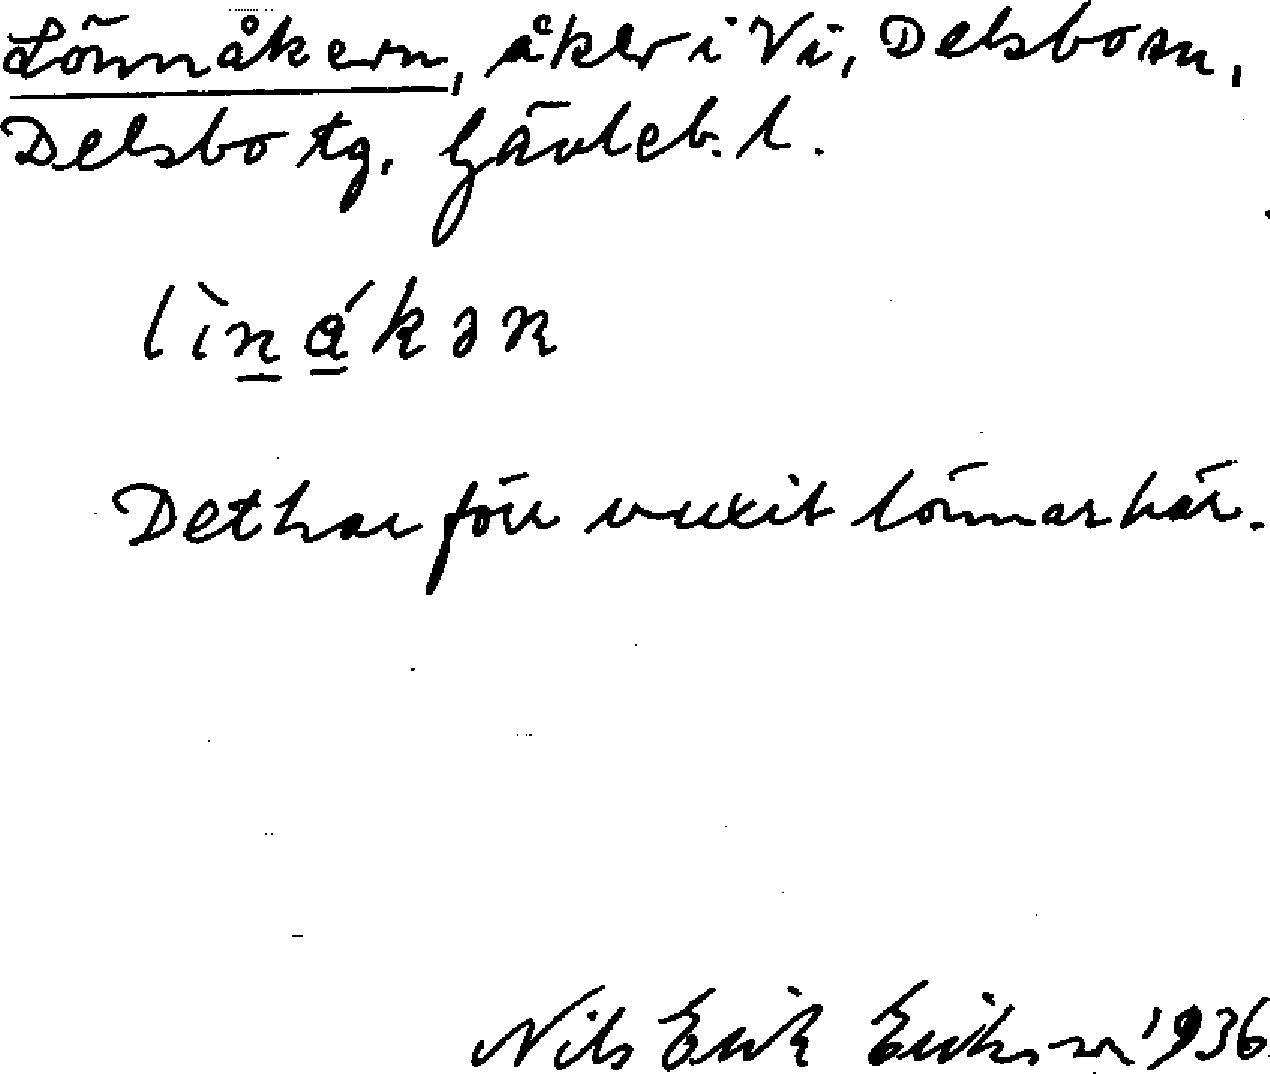 Lönnåkern, åker i Vi, Delsbo sn,
Delsbo tg, Gävleb. l.
lìn̲á̲kən
Det har förr vuxit lönnar här.
Nils Erik Erikson 1936